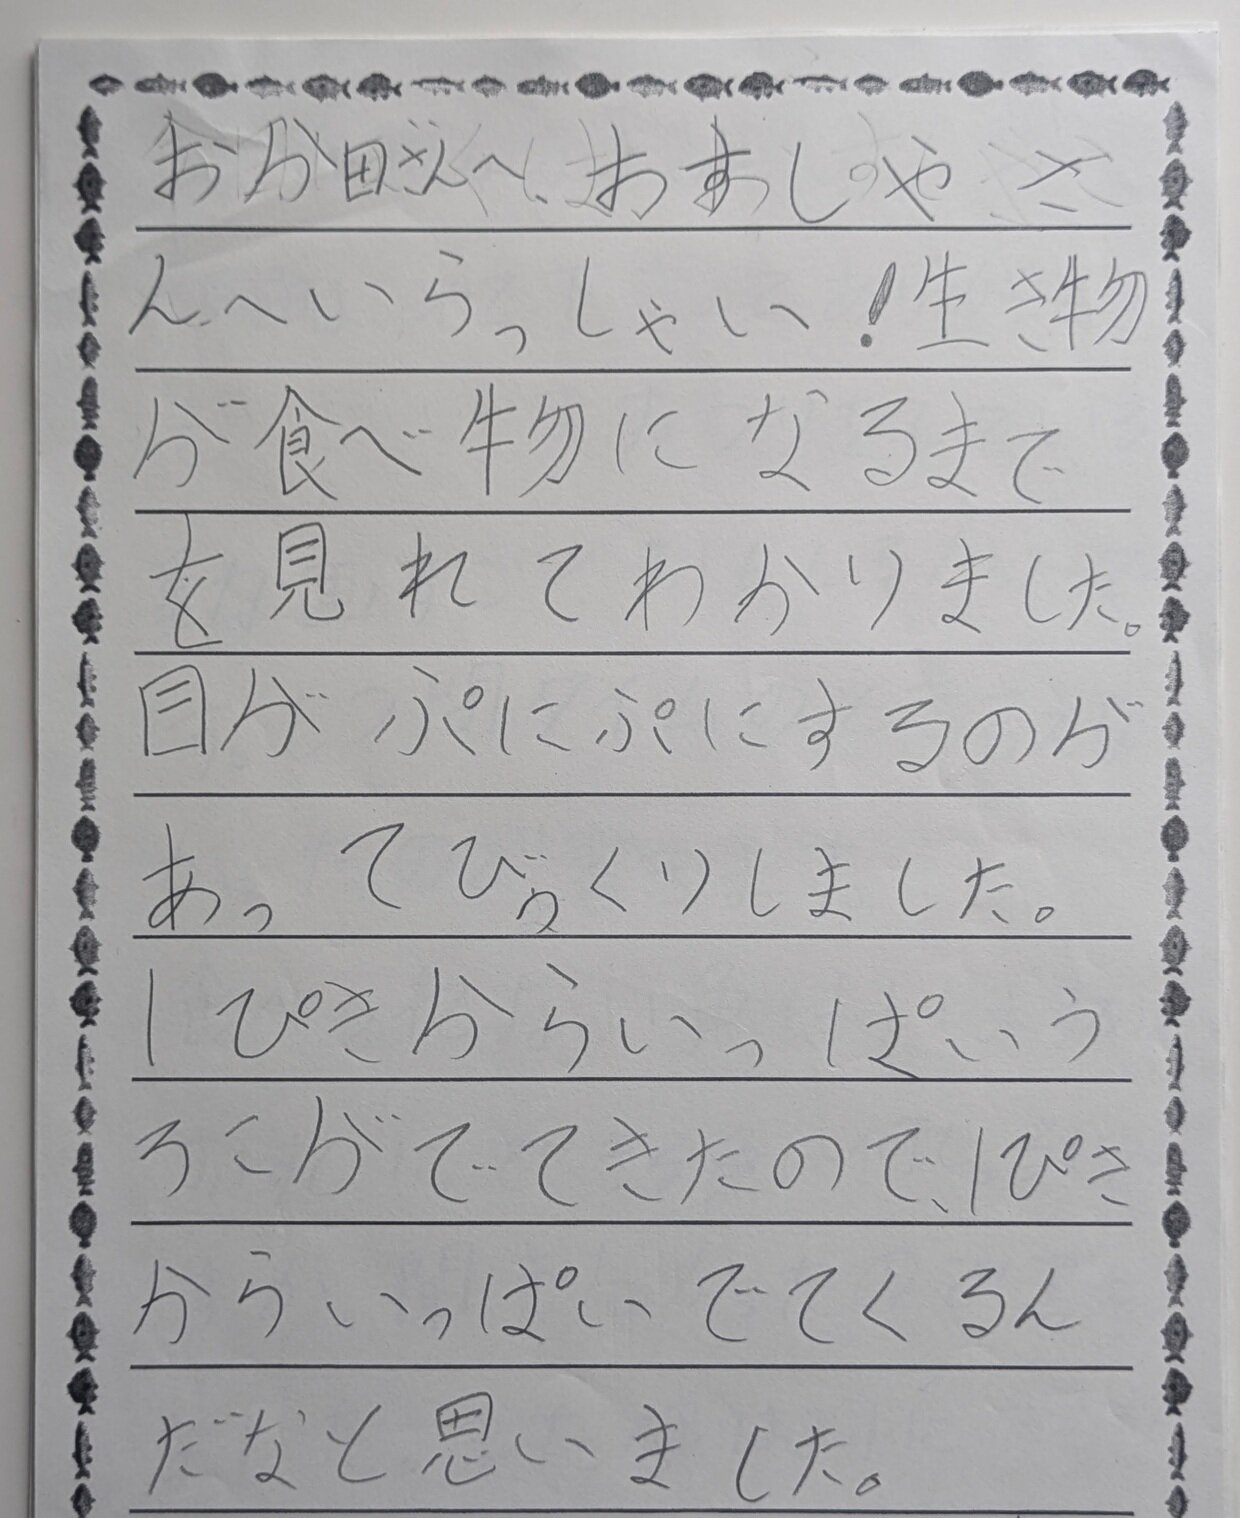 おか田さんへ、おすしやさ
んへいらっしゃい!生き物
が食べ物になるまで
を見れてわかりました。
目がぷにぷにするのが
あってびっくりしました。
1ぴきからいっぱいう
ろこがでてきたので、1ぴき
からいっぱいでてくるん
だなと思いました。